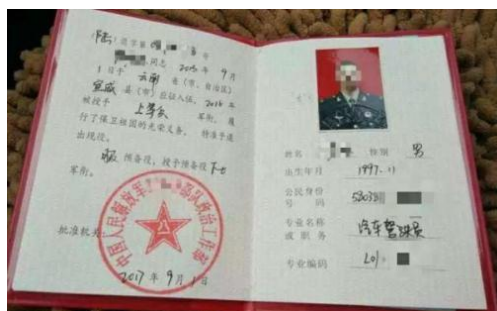 陆 退字第 号
同志 2015 年 9 月
1 日于 云南 省（市、自治区）
宣威 县（市）应征入伍，2016 年
被授予 上等兵 军衔，履
行了保卫祖国的光荣义务，特准予退
出现役。
服 预备役，授予预备役 下士
军衔。
批准机关
中国人民解放军 部队政治工作部
2017 年 9 月 1 日
姓名 性别 男
出生年月 1997.11
公民身份
号 码 53038
专业名称
或 职 务 汽车驾驶员
专业编码 L01